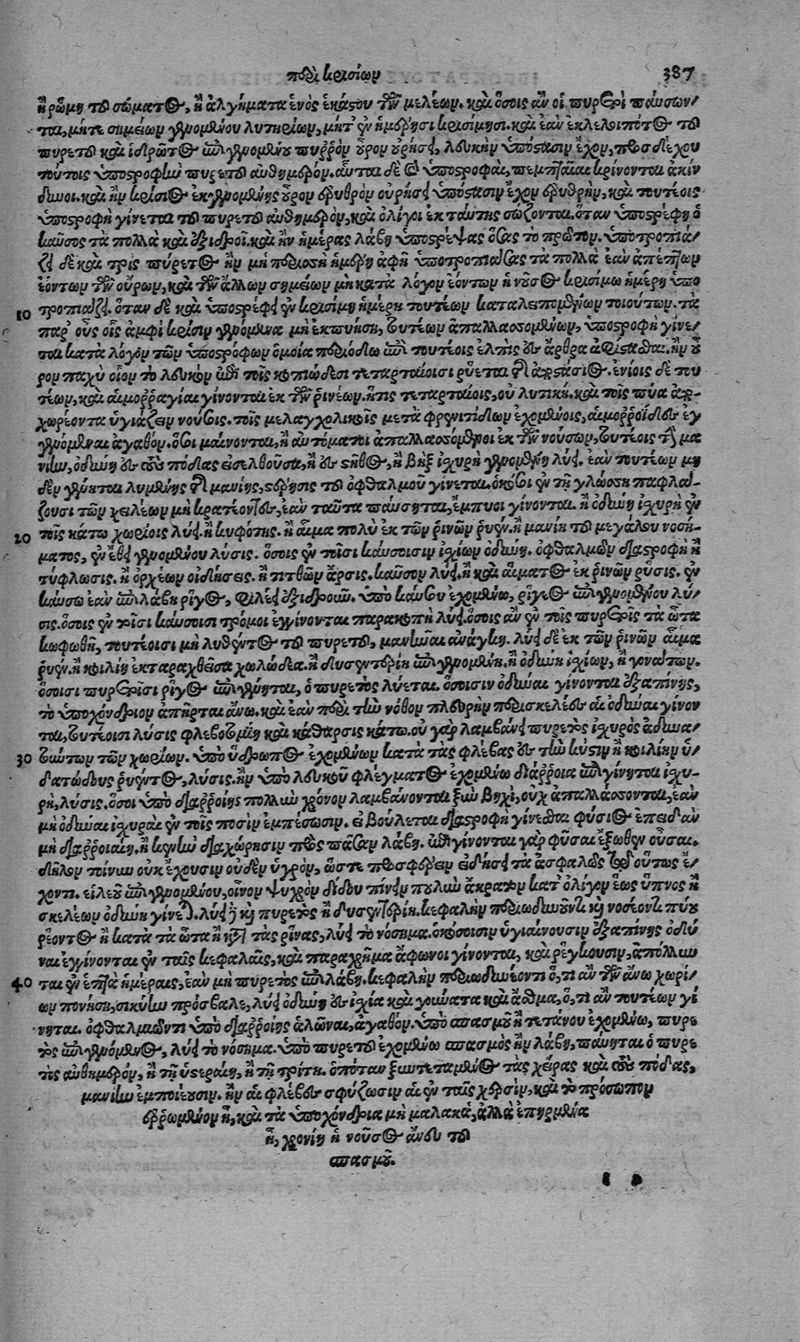 περὶ κρισίων 387
ἢ ῥώμη τοῦ σώματος, ἢ ἀλγήματα ἑνὸς ἑκάστου τῶν μελέων. καὶ ὅσοις ἂν οἱ πυρετοὶ παύσων/
ται, μήτε σημείων γενομένου λυτηρίων, μήτ' ἐν ἡμέρῃσι κρισίμῃσι. καὶ ἐὰν ἐκλελοιπότος τοῦ
πυρετοῦ καὶ ἱδρῶτος ἐπιγενομένου πυρρὸν οὖρον οὐρήσῃ, λευκὴν ὑπόστασιν ἔχον, προσδέχου
τούτοις ὑποστροφὴν πυρετοῦ αὐθημερόν. αὗται δὲ αἱ ὑποστροφαὶ, πεμπταῖαι κρίνονται ἀκίν
δυνοι. καὶ ἢν κρίσιος ἐκγενομένης οὖρον ἐρυθρὸν οὐρήσῃ ὑπόστασιν ἔχον ἐρυθρὴν, καὶ τουτέοις
ὑποστροφὴ γίνεται τοῦ πυρετοῦ αὐθημερὸν, καὶ ὀλίγοι ἐκ ταύτης σώζονται. ὅταν ὑποστρέφῃ ὁ
καῦσος τὰ πολλὰ καὶ ἐξιδροῖ. καὶ ἢν ἡμέρας λάβῃ ὑποστρέψας ὅσας τὸ πρῶτον. ὑποτροπιά/
ζει δὲ καὶ τρὶς πυρετὸς ἢν μὴ περισσῇ ἡμέρῃ ἀφῇ ὑποτροπιάζας τὰ πολλὰ ἐὰν ἀπέπτων
ἐόντων τῶν οὔρων, καὶ τῶν ἄλλων σημείων μὴ κατὰ λόγον ἐόντων ἡ νοῦσος κρισίμῳ ἡμέρῃ ὑπο
10 τροπιάζει. ὅταν δὲ καὶ ὑποστρέφῃ ἐν κρισίμῃ ἡμέρῃ τουτέων καταλειπομένων τοιούτων. τὰ
παρ' οὓς οἷς ἀμφὶ κρίσιν γενόμενα μὴ ἐκπυήσῃ, τουτέων ἀπαλλασσομένων, ὑποστροφὴ γίνε/
ται κατὰ λόγον τῶν ὑποστρόφων ὁμοία περιόδῳ ἐπὶ τουτέοις ἐλπὶς ἐς ἄρθρα ἀφίστασθαι. ἢν οὖ
ρον παχὺ οἷον τὸ λευκὸν ἐπὶ τοῖς κοπιώδεσι τεταρταίοισι ῥύεται τῆς ἀποστάσιος. ἐνίοις δὲ του
τέων, καὶ αἱμορραγίαι γίνονται ἐκ τῶν ῥινέων. ἥτις τεταρταίοις, οὐ λυτική. καὶ τοῖς πύα ἀπο
χωρέοντα ὑγιάζειν νούσοις. τοῖς μελαγχολικοῖς μετὰ φρενιτίδων ἐχομένοις, αἱμορροΐδες ἐγ
γενόμεναι ἀγαθόν. ὅσοι μαίνονται, ἢ αὐτόματοι ἀπαλλασσόμενοι ἐκ τῶν νούσων, τουτέοις τὴν μα
νίην, ὀδύνη ἐς τοὺς πόδας εἰσελθοῦσα, ἢ ἐς στῆθος, ἢ βὴξ ἰσχυρὴ γενομένη λύει. ἐὰν τουτέων μη
δὲν γένηται λυομένης τῆς μανίης, στέρησις τοῦ ὀφθαλμοῦ γίνεται. ὁκόσοι ἐν τῇ γλώσσῃ παφλά/
ζουσι τῶν χειλέων μὴ κρατέοντες, ἐὰν ταῦτα παύσηται, ἔμπυοι γίνονται. ἢ ὀδύνη ἰσχυρὴ ἐν
20 τοῖς κάτω χωρίοις λύει. ἢ κυφότης. ἢ αἷμα πολὺ ἐκ τῶν ῥινῶν ῥυέν. ἢ μανίη τοῦ μεγάλου νοσή-
ματος, ἐν ἔθει γενομένου λύσις. ὅσοις ἐν τοῖσι καύσοισιν ἰσχίων ὀδύνη. ὀφθαλμῶν διαστροφὴ ἢ
τύφλωσις. ἢ ὀρχέων οἰδήσεις. ἢ τιτθῶν ἄρσις. καῦσον λύει. ἢ καὶ αἵματος ἐκ ῥινῶν ῥύσις. ἐν
καύσῳ ἐὰν ἐπιλάβῃ ῥῖγος, φιλέει ἐξιδροῦν. ὑπὸ καύσου ἐχομένῳ, ῥίγεος ἐπιγενομένου λύ/
σις. ὅσοις ἐν τοῖσι καύσοισι τρόμοι ἐγγίνονται παρακοπὴ λύει. ὅσοις ἂν ἐν τοῖς πυρετοῖς τὰ ὦτα
κωφωθῇ, τουτέοισι μὴ λυθέντος τοῦ πυρετοῦ, μανῆναι ἀνάγκη. λύει δὲ ἐκ τῶν ῥινῶν αἷμα
ῥυέν. ἢ κοιλίη ἐκταραχθεῖσα χολώδεα. ἢ δυσεντερίη ἐπιγενομένη. ἢ ὀδύνη ἰσχίων, ἢ γονάτων.
ὅσοισι πυρετοῖσι ῥῖγος ἐπιγένηται, ὁ πυρετὸς λύεται. ὅσοισιν ὀδύναι γίνονται ἐξαπίνης,
τὸ ὑποχόνδριον ἀπῆρται ἄνω. καὶ ἐὰν περὶ τὴν νόθον πλευρὴν περισκελέες αἱ ὀδύναι γίνον
ται, τουτέοισι λύσις φλεβοτομίη καὶ κάθαρσις κάτω. οὐ γὰρ λαμβάνει πυρετὸς ἰσχυρὸς ἀδυνα/
30 τώτων τῶν χωρίων. ὑπὸ ὕδρωπος ἐχομένων κατὰ τὰς φλέβας ἐς τὴν κύστιν ἢ κοιλίην ὑ/
δατώδους ῥυέντος, λύσις. ἢν ὑπὸ λευκοῦ φλέγματος ἐχομένῳ διάρροια ἐπιγίνηται ἰσχυ-
ρὴ, λύσις. ὅσοι ὑπὸ διαρροίης πολλὺν χρόνον λαμβάνονται ξὺν βηχὶ, οὐχ ἀπαλλάσσονται, ἐὰν
μὴ ὀδύναι ἰσχυραὶ ἐν τοῖς ποσὶν ἐμπέσωσιν. εἰ βούλεται διαστροφὴ γίνεσθαι φύσιος ἐπειδὰν
μὴ διάρροια ᾖ. ἢ κοινὴν διαχώρησιν πρὸς πᾶσαν λάβῃ. ἐπιγίνονται γὰρ φῦσαι ἔξωθεν οὖσαι.
δῆλον πίνων οὐκ ἔχουσιν οὐδὲν ὑγρὸν, ὥστε προσφέρειν εἰδήσει τὰ ἀσφαλῶς τοῦ οὕτως ἔ/
χοντι. εἰλεοῦ ἐπιγενομένου, οἶνον ψυχρὸν δίδου πίνειν πουλὺν ἄκρατον κατ' ὀλίγον ἕως ὕπνος ἢ
σκελέων ὀδύνη γένηται. λύει δὲ καὶ πυρετὸς ἢ δυσεντερίη. κεφαλὴν περιωδυνέοντι καὶ νοσέοντι πύου
ῥέοντος ἢ κατὰ τὰ ὦτα ἢ κατὰ τὰς ῥῖνας, λύει τὸ νόσημα. ὁκόσοισιν ὑγιαίνουσιν ἐξαπίνης ὀδύ
ναι ἐγγίνονται ἐν ταῖς κεφαλαῖς, καὶ παραχρῆμα ἄφωνοι γίνονται, καὶ ῥέγχουσιν, ἀπόλλυν
40 ται ἐν ἑπτὰ ἡμέραις, ἐὰν μὴ πυρετὸς ἐπιλάβῃ. κεφαλὴν περιωδυνέοντι ὅ, τι ἂν τῶν ἄνω χωρί/
ων πονήσῃ, σικύην πρόσβαλε, λύει ὀδύνη ἐς ἰσχία καὶ γούνατα καὶ ἄσθμα, ὅ, τι ἂν τουτέων γί
νηται. ὀφθαλμιῶντι ὑπὸ διαρροίης ἁλῶναι, ἀγαθόν. ὑπὸ σπασμοῦ ἢ τετάνου ἐχομένῳ, πυρε
τὸς ἐπιγενόμενος, λύει τὸ νόσημα. ὑπὸ πυρετοῦ ἐχομένῳ σπασμὸς ἢν λάβῃ, παύηται ὁ πυρε
τὸς αὐθημερὸν, ἢ τῇ ὑστεραίῃ, ἢ τῇ τρίτῃ. ὁπόταν ξυντεταμένος τὰς χεῖρας καὶ τοὺς πόδας,
μανίην ἐμποιέουσιν. ἢν αἱ φλέβες σφύζωσιν αἱ ἐν ταῖς χερσὶν, καὶ τὸ πρόσωπον
ἐρρωμένον ᾖ, καὶ τὰ ὑποχόνδρια μὴ μαλακὰ, ἀλλὰ ἐπηρμένα
ᾖ, χρονίη ἡ νοῦσος ἄνευ τοῦ
σπασμοῦ.